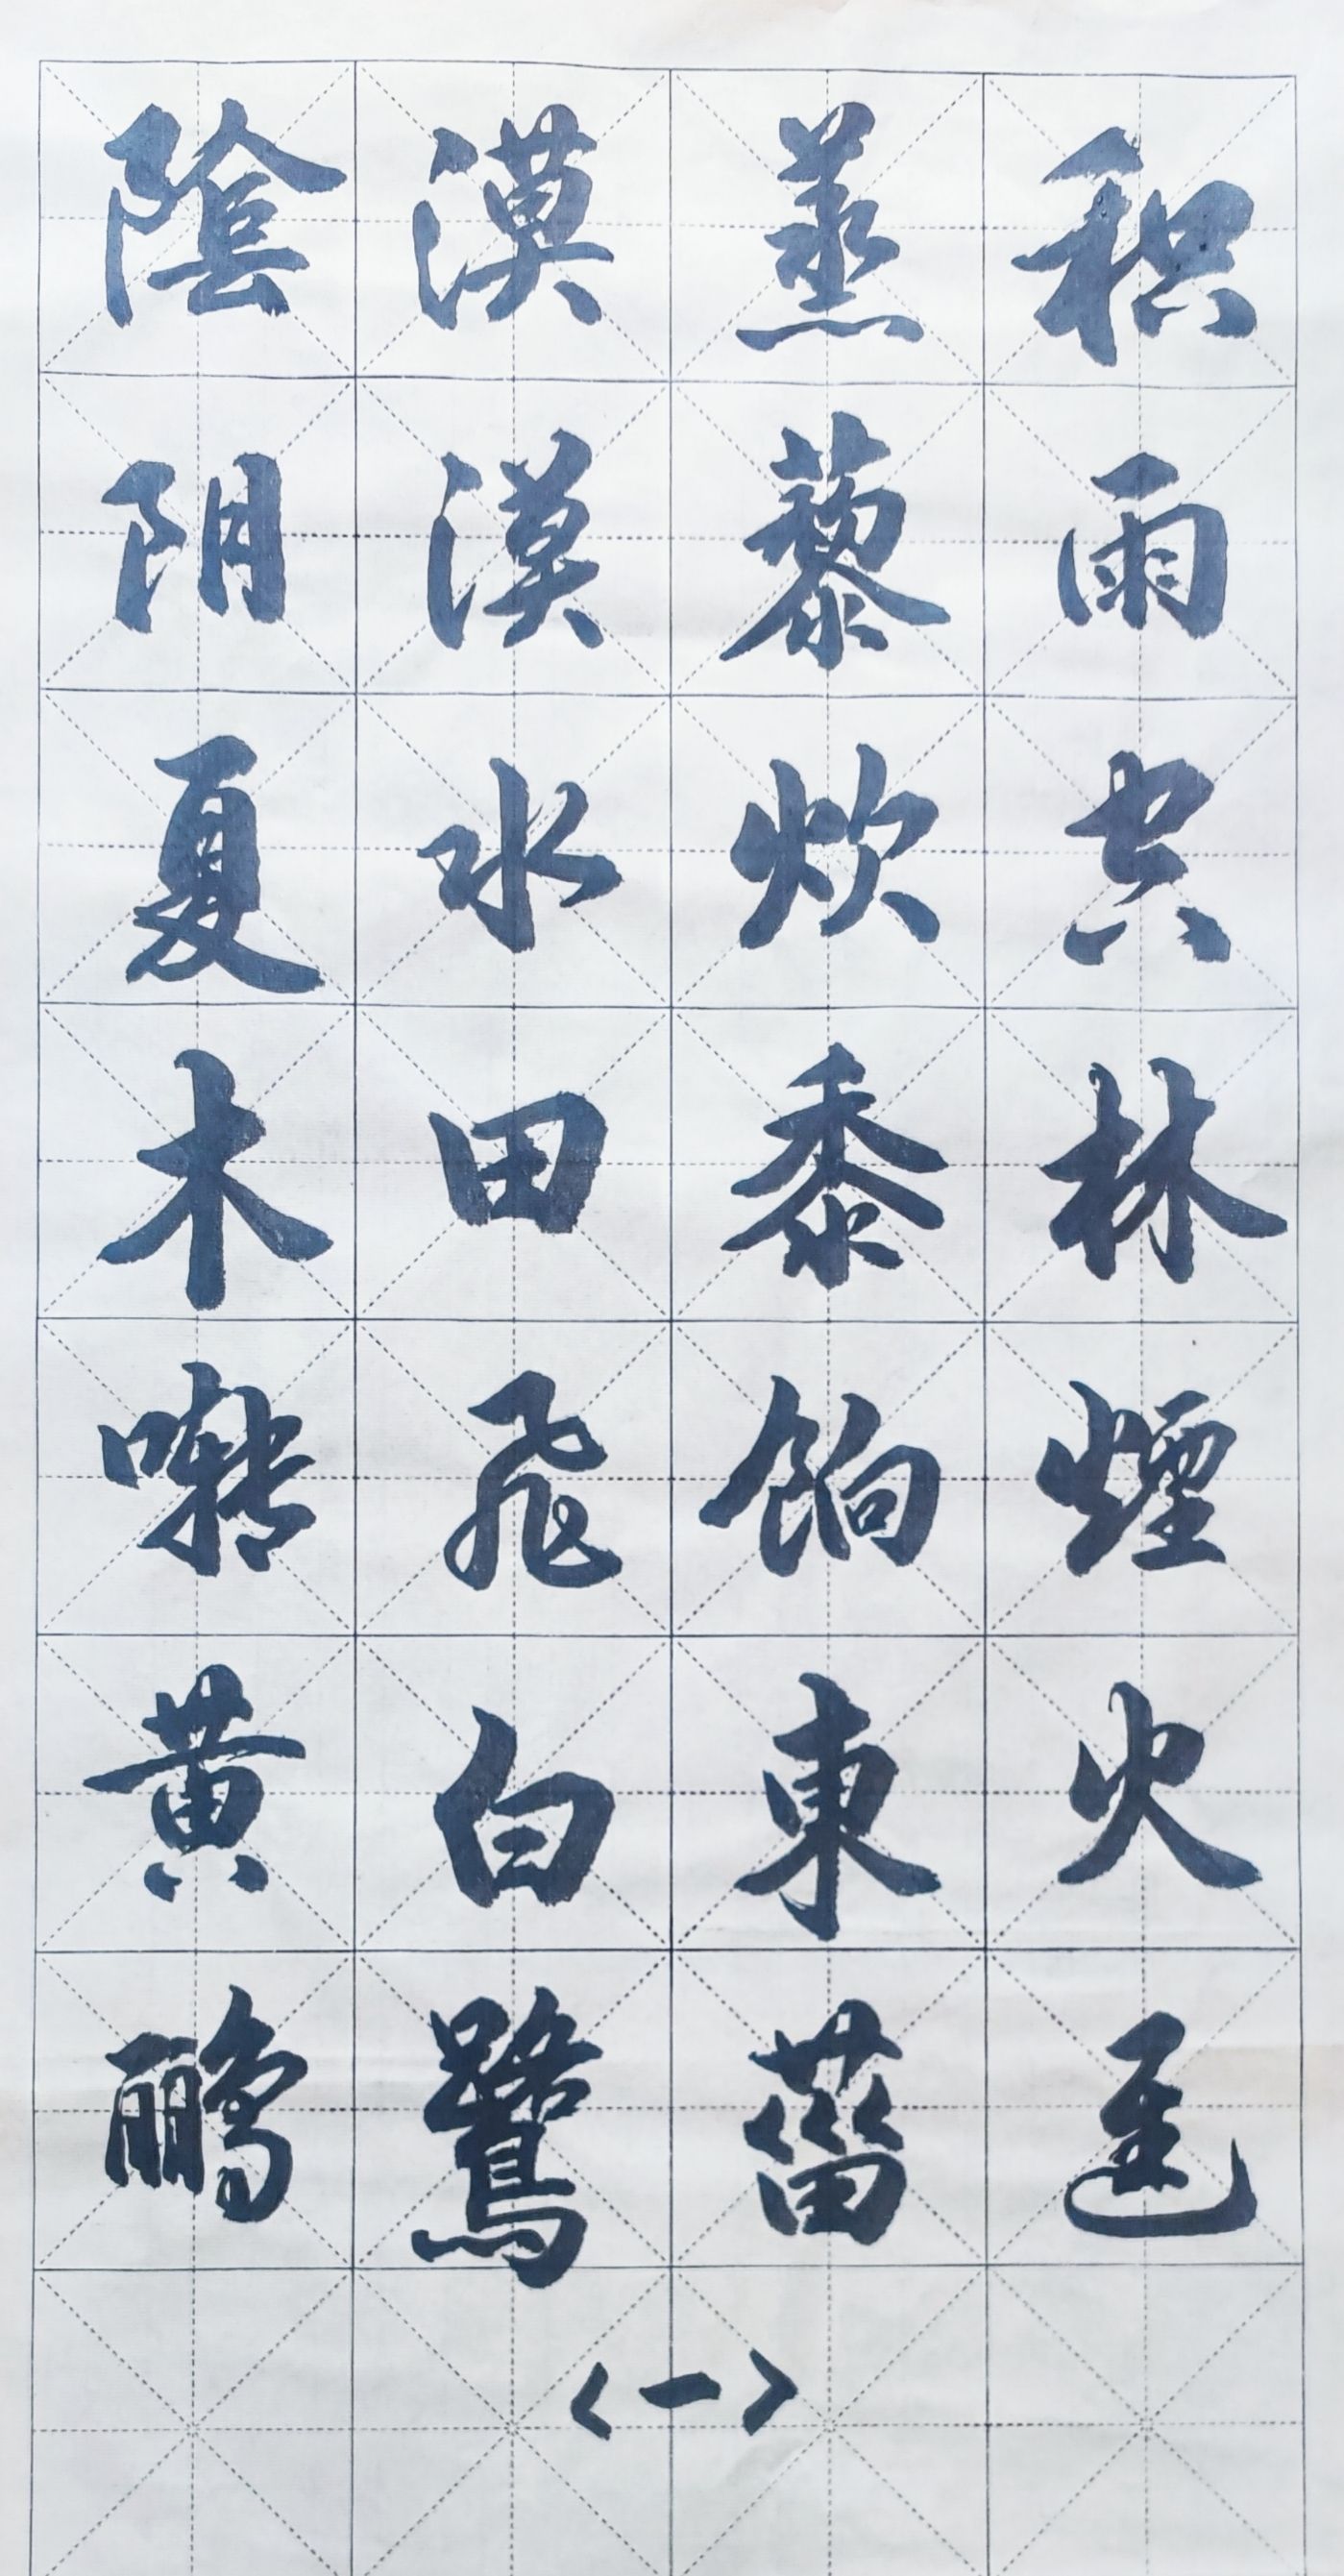 积雨空林煙火遲
蒸藜炊黍餉東菑
漠漠水田飛白鷺
陰阴夏木囀黄鹂
<一>